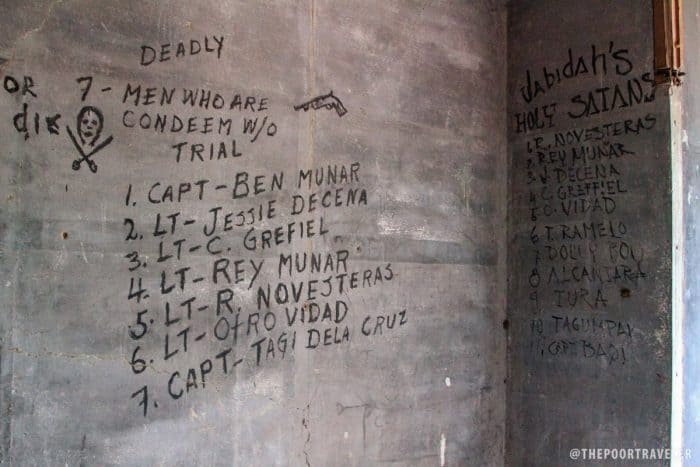 DEADLY
OR 7- MEN WHO ARE
die CONDEEM W/O
TRIAL
1. CAPT-BEN MUNAR
2. LT-JESSIE DECENA
3. LT-C. GREFIEL
4. LT-REY MUNAR
5. LT-R. NOVESTERAS
6. LT-OTRO VIDAD
7. CAPT-TAGI DELA CRUZ
Jabidah's
HOLY SATANS
1. R. NOVESTERAS
2. REY MUÑAR
3. J. DECENA
4 C. GREFFIEL
5 O. VIDAD
6 T. RAMELO
7 DOLLY
8 ALCANTARA
9 TURA
10 TAGUMPAY
11. CAPT.
@THEPOORTRAVELER